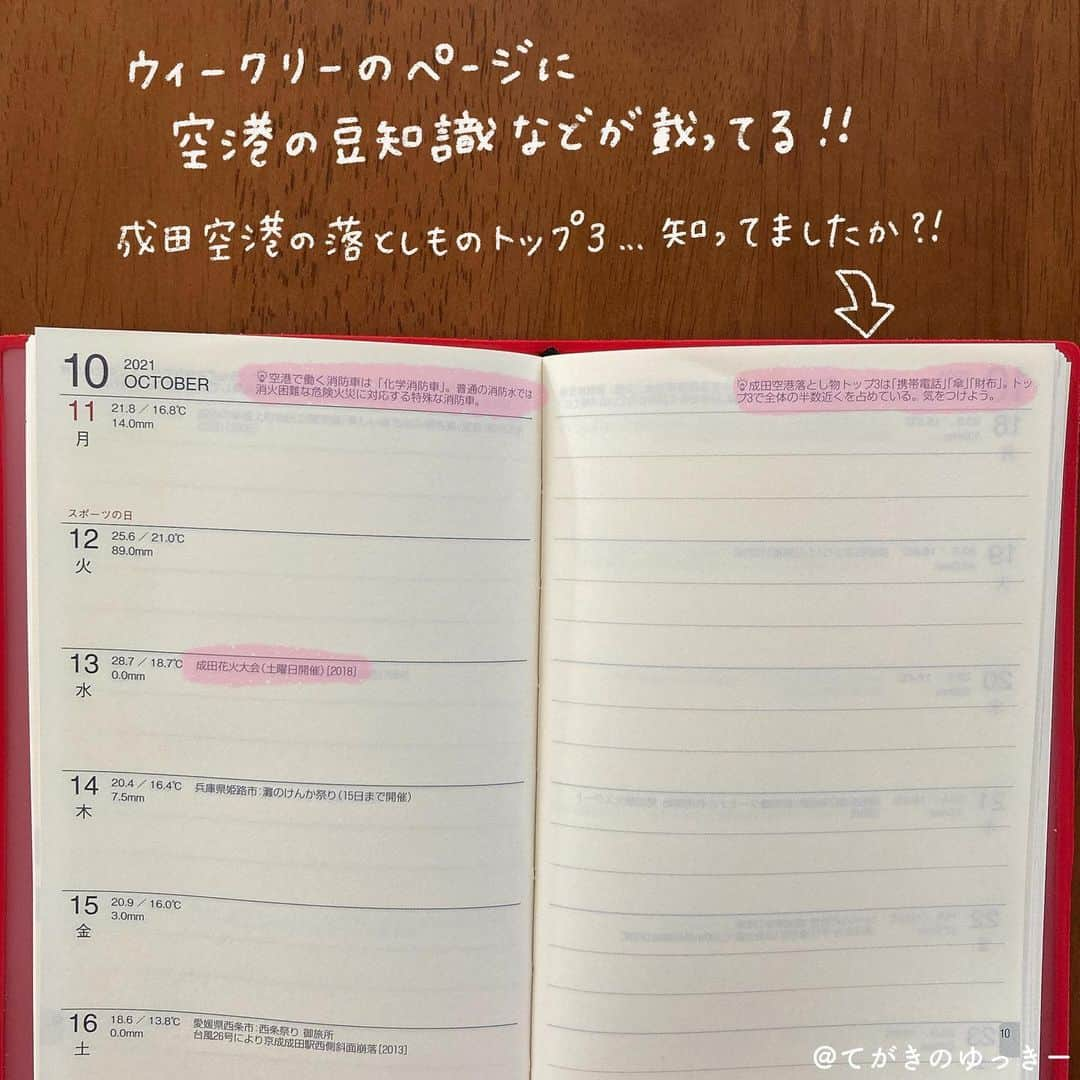 ウィークリーのページに
空港の豆知識などが載ってる!!
成田空港の落としものトップ3…知ってましたか?!
10 2021 OCTOBER
空港で働く消防車は「化学消防車」。普通の消防水では
消火困難な危険火災に対応する特殊な消防車。
11 月 21.8 / 16.8℃
14.0mm
スポーツの日
12 火 25.6 / 21.0℃
89.0mm
13 水 28.7 / 18.7℃ 成田花火大会(土曜日開催)[2018]
0.0mm
14 木 20.4 / 16.4℃ 兵庫県姫路市:灘のけんか祭り(15日まで開催)
7.5mm
15 金 20.9 / 16.0℃
3.0mm
16 土 18.6 / 13.8℃ 愛媛県西条市:西条祭り 御旅所
0.0mm 台風26号により京成成田駅西側斜面崩落[2013]
成田空港落とし物トップ3は「携帯電話」「傘」「財布」。トッ
プ3で全体の半数近くを占めている。気をつけよう。
10
@てがきのゆっきー